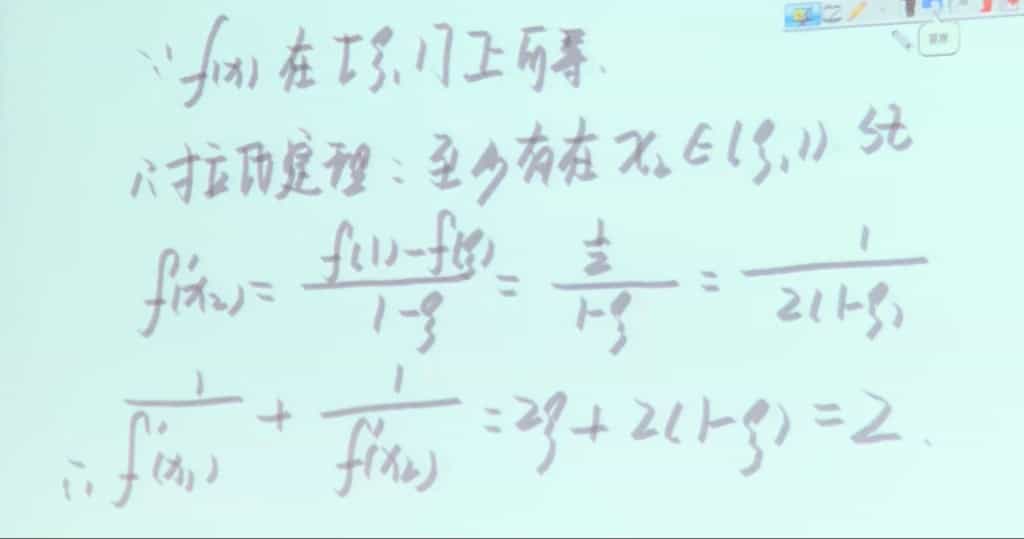 ∵ f(x) 在 [ξ,1] 上可导.
∴ 拉氏定理: 至少存在 x₂ ∈ (ξ,1) st
f'(x₂) = \frac{f(1)-f(ξ)}{1-ξ} = \frac{\frac{1}{2}}{1-ξ} = \frac{1}{2(1-ξ)}
∴ \frac{1}{f'(x₁)} + \frac{1}{f'(x₂)} = 2ξ + 2(1-ξ) = 2.